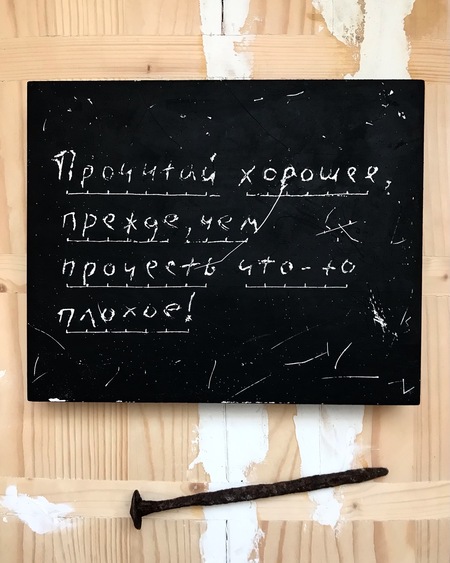 Прочитай хорошее,
прежде, чем
прочесть что-то
плохое!